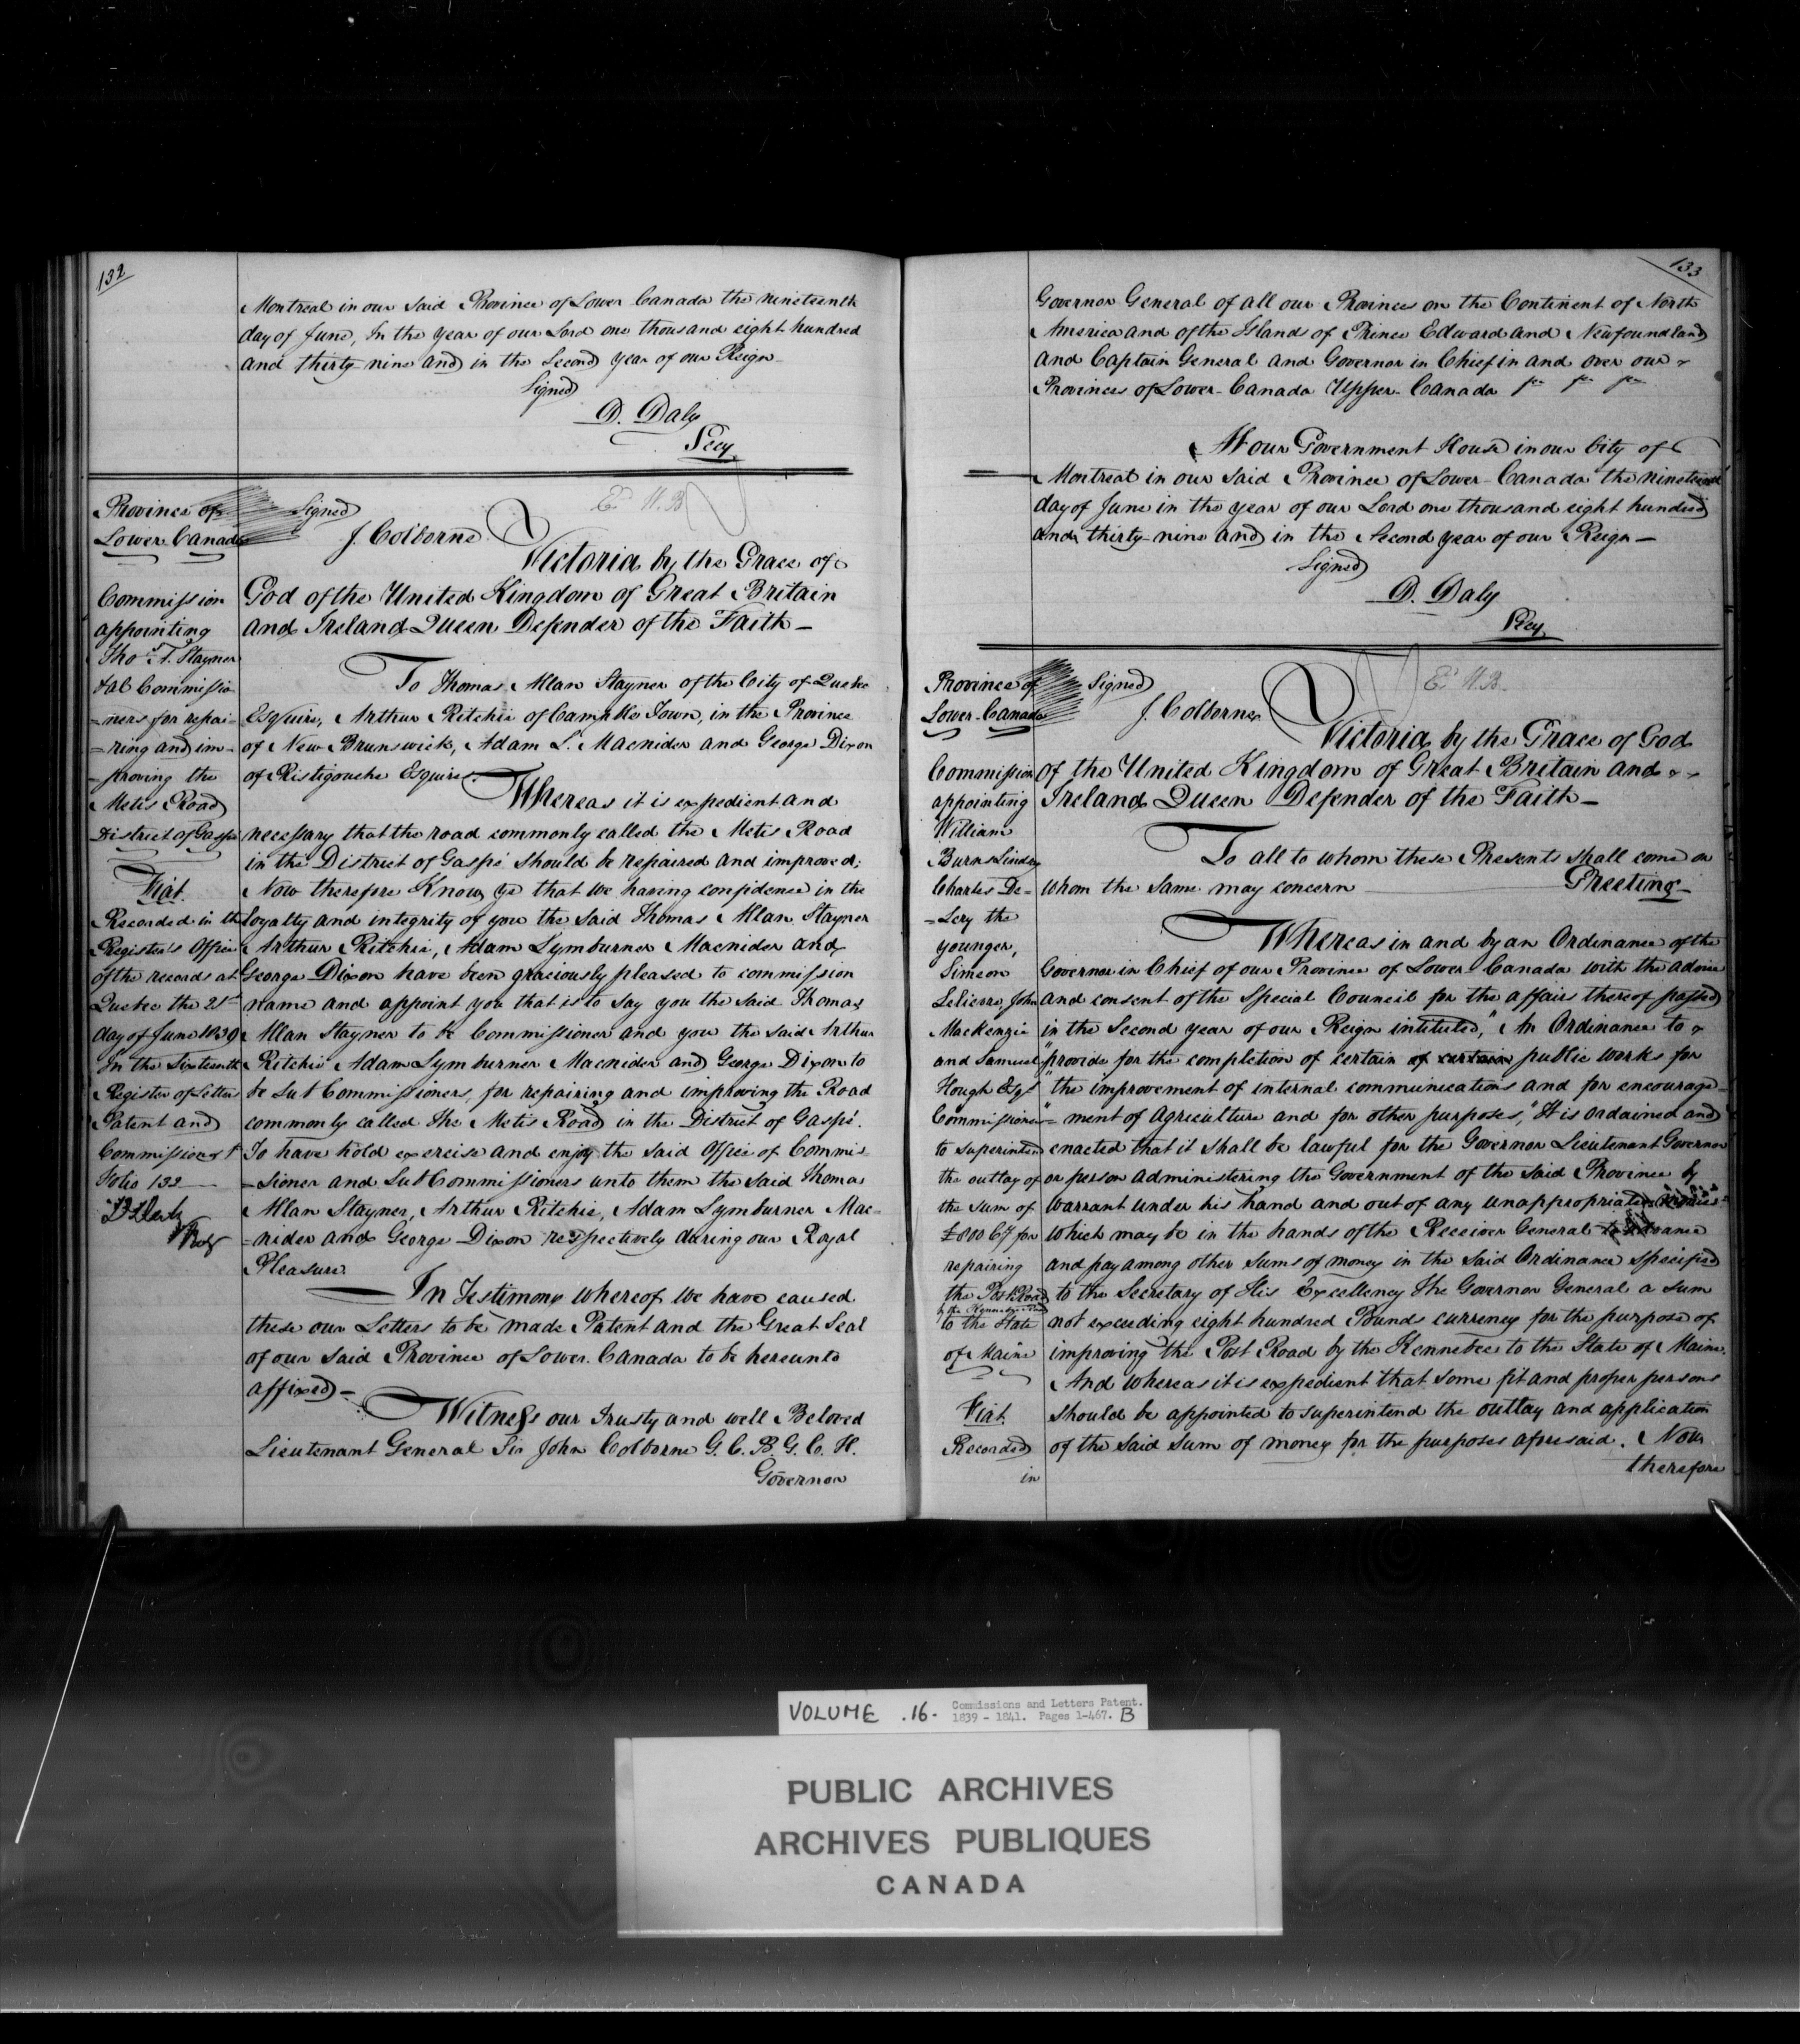 132
Montreal in our said Province of Lower Canada the nineteenth
day of June, In the year of our Lord one thousand eight hundred
and thirty nine and in the Second year of our Reign
Signed
D. Daly
Secy
Province of
Lower Canada
Commission
appointing
Thos. A. Stayner
& al Commissio
=ners for repai=
=ring and im=
=proving the
Metis Road
District of Gaspé
Fiat.
Recorded in the
Register's Office
of the records at
Quebec the 21st
day of June 1839
In the Sixteenth
Register of Letters
Patent and
Commissions
Folio 132
D Daly
Signed
J. Colborne
Victoria by the Grace of
God of the United Kingdom of Great Britain
and Ireland Queen Defender of the Faith
To Thomas Allan Stayner of the City of Quebec
Esquire, Arthur Ritchie of Campble Town, in the Province
of New Brunswick, Adam L. Macnider and George Dixon
of Ristigouche Esquires.
Whereas it is expedient and
necessary that the road commonly called the Metis Road
in the District of Gaspé should be repaired and improved;
Now therefore Know ye that we having confidence in the
loyalty and integrity of you the said Thomas Allan Stayner
Arthur Ritchie, Adam Lymburner Macnider and
George Dixon have been graciously pleased to commission
name and appoint you that is to say you the said Thomas
Allan Stayner to be Commissioner and you the said Arthur
Ritchie Adam Lymburner Macnider and George Dixon to
be Sub Commissioners, for repairing and improving the Road
commonly called the Metis Road in the District of Gaspé.
To have hold exercise and enjoy the said Office of Commis
=sioner and Sub Commissioners unto them the said Thomas
Allan Stayner, Arthur Ritchie, Adam Lymburner Mac=
=nider and George Dixon respectively during our Royal
Pleasure.
In Testimony whereof we have caused
these our Letters to be made Patent and the Great Seal
of our said Province of Lower Canada to be hereunto
affixed
Witness our Trusty and well Beloved
Lieutenant General Sir John Colborne G. C. B. G. C. H.
Governor
133
Governor General of all our Provinces on the Continent of North
America and of the Islands of Prince Edward and Newfoundland
and Captain General and Governor in Chief in and over our
Provinces of Lower Canada Upper Canada
At our Government House in our City of
Montreal in our said Province of Lower Canada the nineteenth
day of June in the year of our Lord one thousand eight hundred
and thirty nine and in the Second year of our Reign
Signed
D. Daly
Secy
Province of
Lower Canada
Commission
appointing
William
Burns Lindsay
Charles De=
=Lery the
younger,
Simeon
Lelievre, John
MacKenzie
and Samuel
Hough Esqs
Commissioners
to superintend
the outlay of
the sum of
£800 Cy for
repairing
the Post Road
by the Kennebec Road
to the State
of Maine
Fiat.
Recorded
in
Signed
J. Colborne
Victoria by the Grace of God
of the United Kingdom of Great Britain and
Ireland Queen Defender of the Faith
To all to whom these Presents shall come or
whom the same may concern Greeting
Whereas in and by an Ordinance of the
Governor in Chief of our Province of Lower Canada with the advice
and consent of the Special Council for the affairs thereof passed
in the Second year of our Reign intituled, "An Ordinance to
"provide for the completion of certain of certain public works for
"the improvement of internal communications and for encourage=
"=ment of Agriculture and for other purposes," It is ordained and
enacted that it shall be lawful for the Governor Lieutenant Governor
or person administering the Government of the said Province by
warrant under his hand and out of any unappropriated monies
which may be in the hands of the Receiver General to advance
and pay among other sums of money in the said Ordinance specified
to the Secretary of His Excellency The Governor General a sum
not exceeding eight hundred Pounds currency for the purpose of
improving the Post Road by the Kennebec to the State of Maine.
And whereas it is expedient that some fit and proper persons
should be appointed to superintend the outlay and application
of the said sum of money for the purposes aforesaid. Now
therefore
VOLUME .16. Commissions and Letters Patent.
1839 - 1841. Pages 1-467. B
PUBLIC ARCHIVES
ARCHIVES PUBLIQUES
CANADA